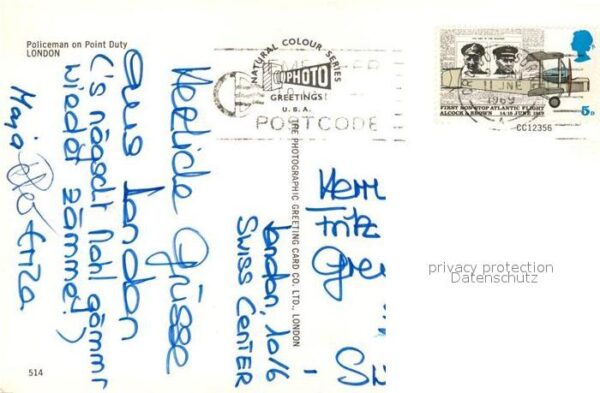 Policeman on Point Duty
LONDON
Herzliche Grüsse
aus London
(s'näggscht Mohl gömmr
wieder zämme!)
Maja
514
NATURAL COLOUR SERIES
PHOTO
GREETINGS!
U.S.A.
POSTCODE
THE PHOTOGRAPHIC GREETING CARD CO. LTD., LONDON
London, 10/6
Swiss Center
Herr
Fritz
FIRST NON-STOP ATLANTIC FLIGHT
ALCOCK & BROWN 14-15 JUNE 1919
5D
11 JNE
1969
CC12356
privacy protection
Datenschutz